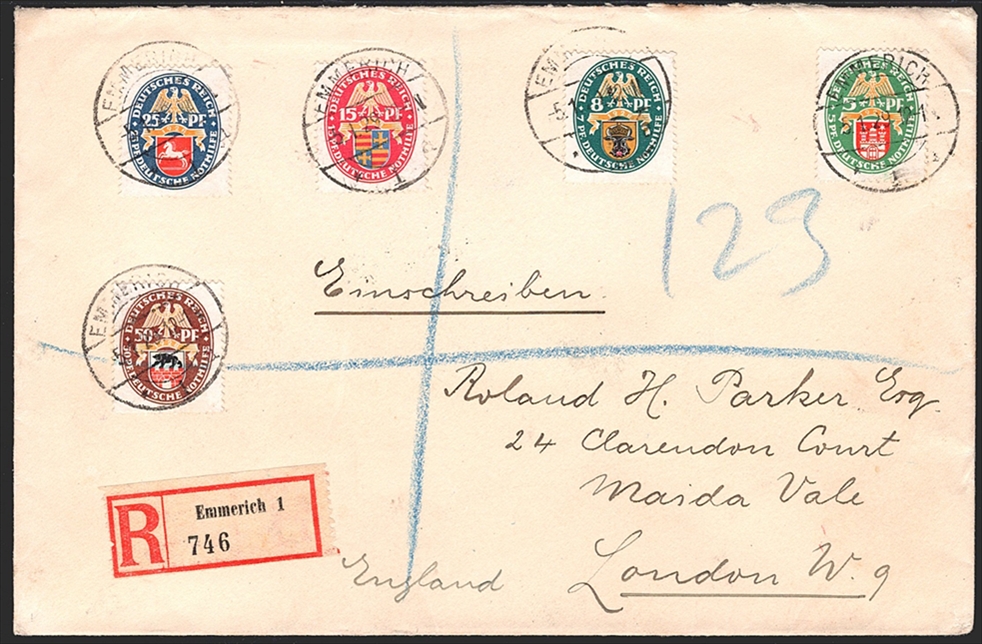 EMMERICH
DEUTSCHES REICH
25 PF
25 PF DEUTSCHE NOTHILFE
EMMERICH
DEUTSCHES REICH
15 PF
15 PF DEUTSCHE NOTHILFE
DEUTSCHES REICH
8 PF
7 PF DEUTSCHE NOTHILFE
EMMERICH
REICH
5 PF
5 PF DEUTSCHE NOTHILFE
123
Einschreiben.
EMMERICH
DEUTSCHES REICH
50 PF
50 PF DEUTSCHE NOTHILFE
Roland H. Parker Esq.
24 Clarendon Court
Maida Vale
London W. 9
England
R
Emmerich 1
746